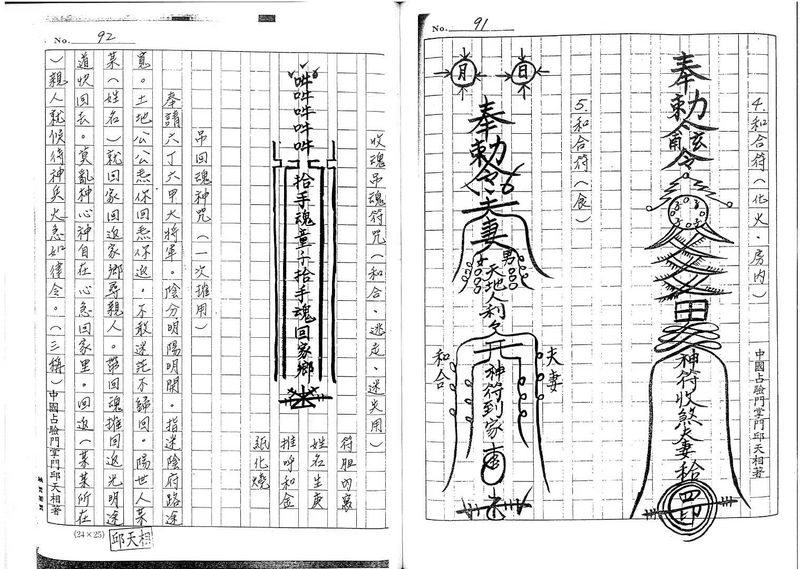 No. 91
4.和合符(化火、房内)
中國占驗門掌門邱天相著
奉勅令
神符收煞夫妻
5.和合符(食)
日
月
奉勅令夫妻
男
女
天地人利
夫妻
和合
神符到家
No. 92
收魂吊魂符咒(和合、迷走、迷失用)
吽吽吽吽吽
拾手魂童子拾手魂回家鄉
符胆内寫
姓名生庚
推呼和金
紙化燒
吊回魂神咒(一次推用)
奉請六丁六甲大將軍。陰分明陽明開。指迷陰府路途
寬。土地公公悉你回悉你返。不敢迷茫不歸回。陽世人某
某(姓名)就回家回返家鄉尋親人。帶回魂推回返光明途
道快回去。莫亂神心神自在心急回家里。回返(某某所在
)親人就候待神兵火急如律令。(三稱)
中國占驗門掌門邱天相著
(24×25)
邱天相